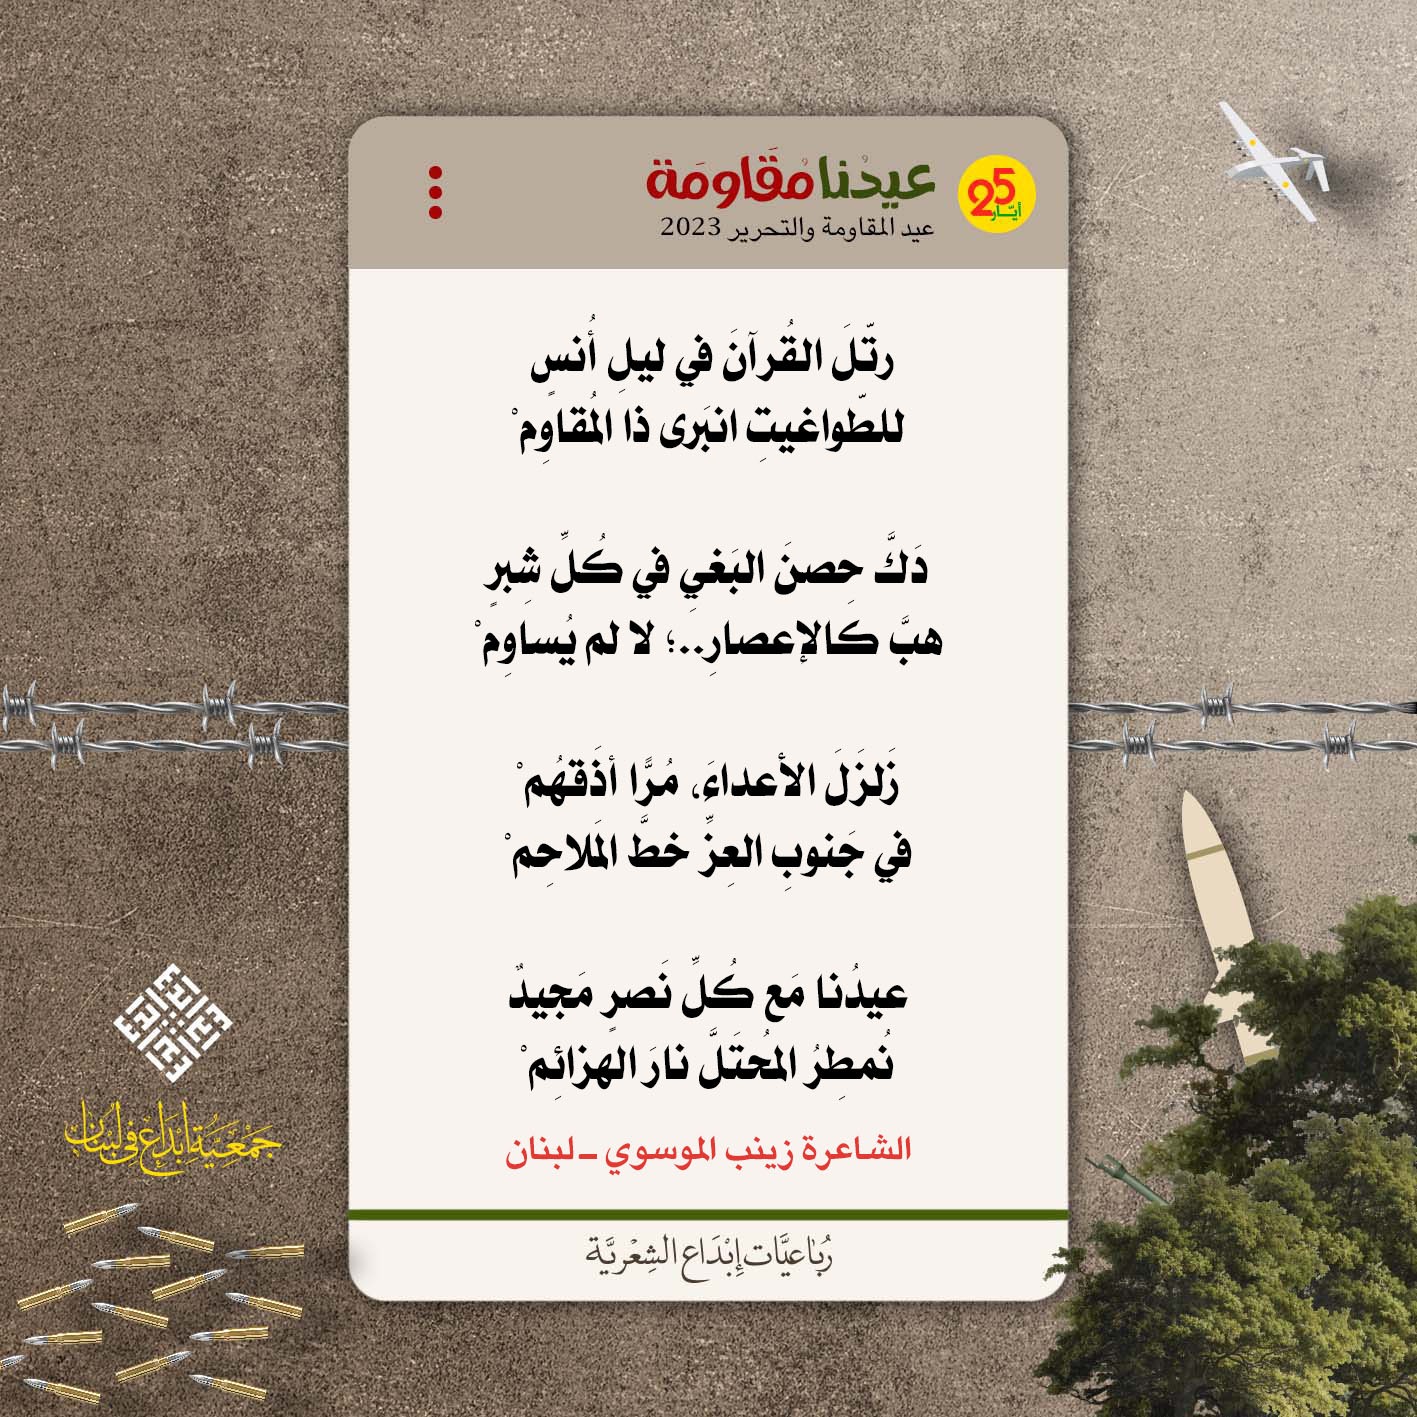 25
أيّار
عيدُنا مُقَاومَة
عيد المقاومة والتحرير 2023
رتّلَ القُرآنَ في ليلِ أُنسٍ
للطّواغيتِ انبَرى ذا المُقاوِمْ
دَكَّ حِصنَ البَغيِ في كُلِّ شِبرٍ
هبَّ كالإعصارِ..؛ لا لم يُساوِمْ
زَلزَلَ الأعداءَ، مُرًّا أذَقهُمْ
في جَنوبِ العِزِّ خطَّ المَلاحِمْ
عيدُنا مَع كُلِّ نَصرٍ مَجيدٌ
نُمطِرُ المُحتَلَّ نارَ الهزائِمْ
الشاعرة زينب الموسوي - لبنان
رُبَاعيَّات إِبْدَاع الشِعْريَّة
جَمْعِيَّة إبْدَاع في لبْنَان